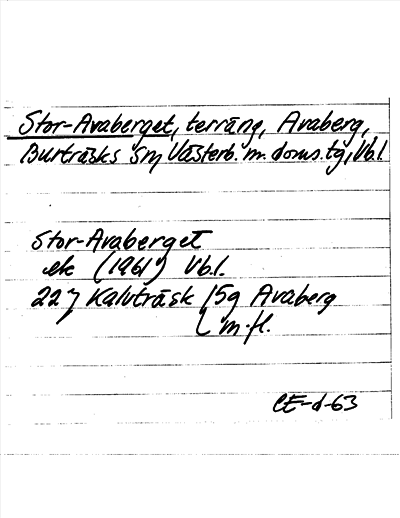 Stor-Avaberget, terräng, Avaberg,
Burträsks sn, Västerb. m. doms. tg, Vb.l.
Stor-Avaberget
ek (1961) Vb.l.
22 J Kalvträsk / 5g Avaberg
m.fl.
CE-d-63